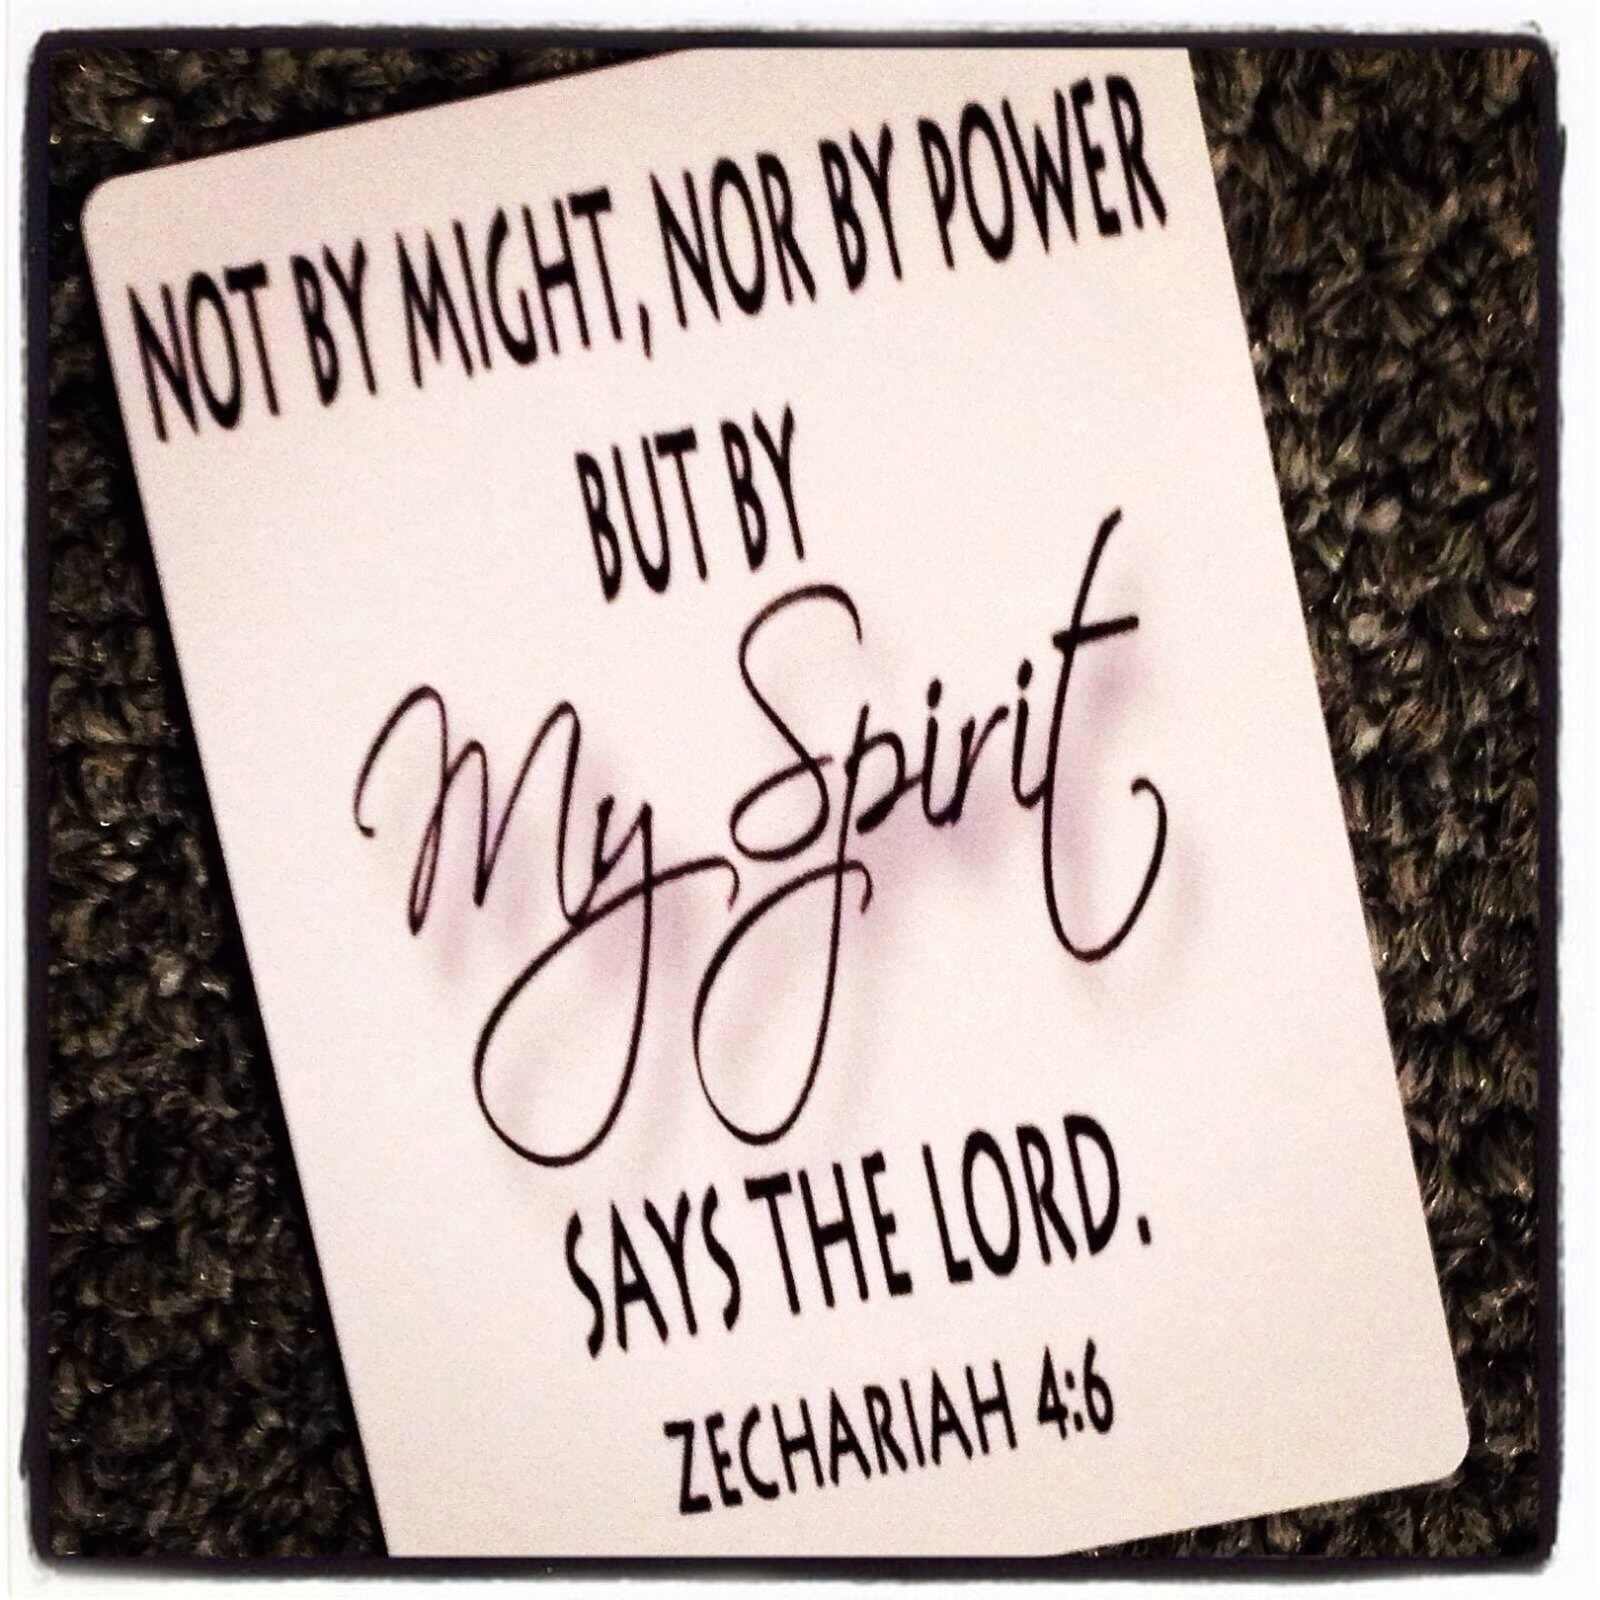 NOT BY MIGHT, NOR BY POWER
BUT BY
My Spirit
SAYS THE LORD.
ZECHARIAH 4:6